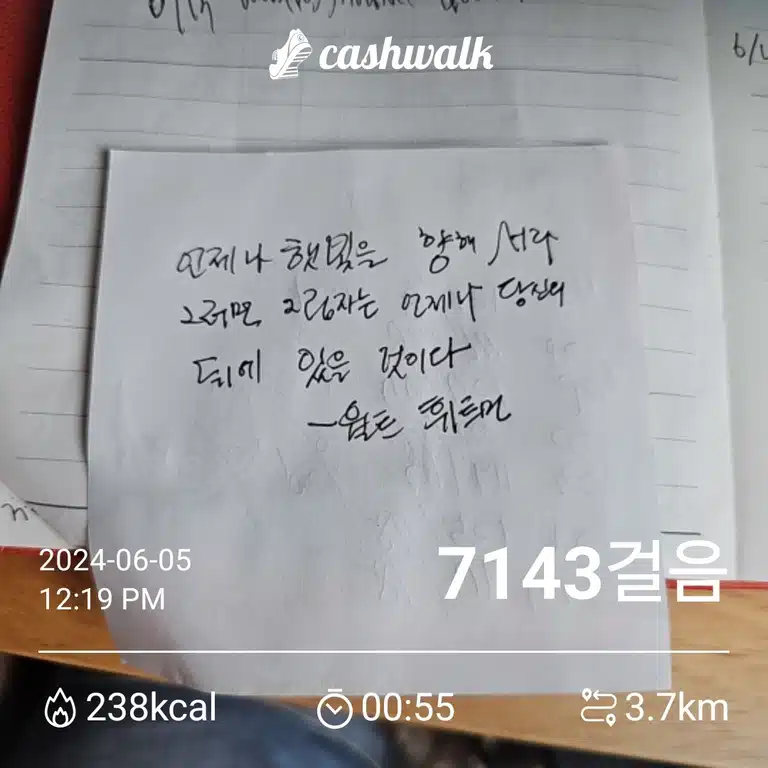 cashwalk
언제나 햇빛을 향해 서라
그러면 그림자는 언제나 당신의
뒤에 있을 것이다
-월트 휘트먼
2024-06-05
12:19 PM
7143걸음
238kcal
00:55
3.7km